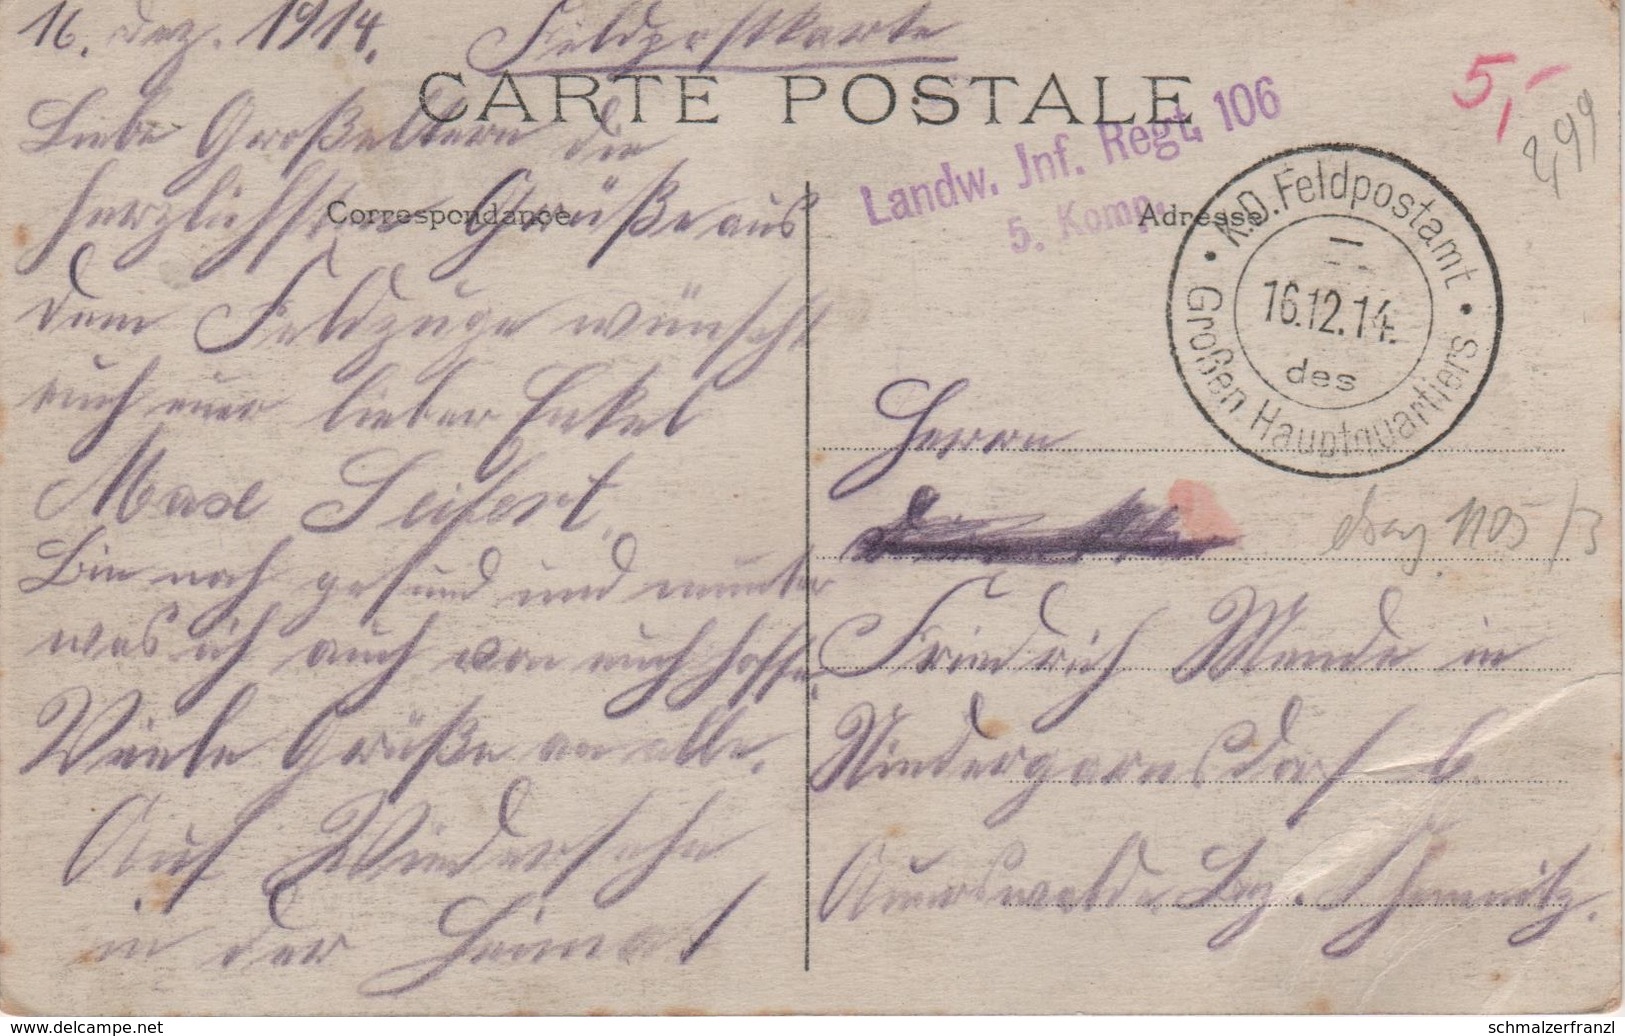 16. Dez. 1914. Feldpostkarte
CARTE POSTALE
Liebe Großeltern die
herzlichsten Grüße aus
dem Feldzuge wünscht
euch euer lieber Enkel
Max Seifert.
Bin noch gesund und munter
was ich auch von euch hoffe.
Viele Grüße an alle.
Auf Wiedersehn
in der Heimat
Correspondance
Landw. Inf. Regt. 106
5. Komp.
Adresse
K.D. Feldpostamt
16.12.14.
des
Großen Hauptquartiers
5,-
2,99
Herrn
Friedrich Mende in
Niedergarnsdorf b.
Auerswalde Bez. Chemnitz.
1105/3
www.delcampe.net
schmalzerfranzl